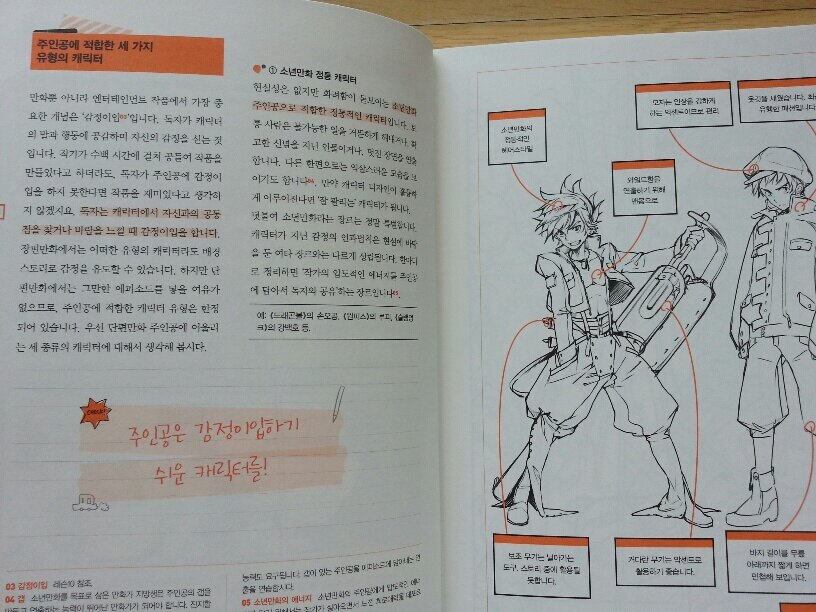 주인공에 적합한 세 가지
유형의 캐릭터
만화뿐 아니라 엔터테인먼트 작품에서 가장 중
요한 개념은 '감정이입03'입니다. 독자가 캐릭터
의 말과 행동에 공감하며 자신의 감정을 싣는 것
입니다. 작가가 수백 시간에 걸쳐 공들여 작품을
만들었다고 하더라도, 독자가 주인공에 감정이
입을 하지 못한다면 작품을 재미있다고 생각하
지 않겠지요. 독자는 캐릭터에서 자신과의 공통
점을 찾거나 바람을 느낄 때 감정이입을 합니다.
장편만화에서는 어떠한 유형의 캐릭터라도 배경
스토리로 감정을 유도할 수 있습니다. 하지만 단
편만화에서는 그만한 에피소드를 넣을 여유가
없으므로, 주인공에 적합한 캐릭터 유형은 한정
되어 있습니다. 우선 단편만화 주인공에 어울리
는 세 종류의 캐릭터에 대해서 생각해 봅시다.
① 소년만화 정통 캐릭터
현실성은 없지만 화려함이 돋보이는 소년만화
주인공으로 적합한 정통적인 캐릭터입니다. 보
통 사람은 불가능한 일을 거뜬하게 해내거나, 확
고한 신념을 지닌 인물이거나, 멋진 장면을 연출
합니다. 다른 한편으로는 익살스러운 모습을 보
이기도 합니다04. 만약 캐릭터 디자인이 훌륭하
게 이루어진다면 '잘 팔리는' 캐릭터가 됩니다.
덧붙여 소년만화라는 장르는 정말 특별합니다.
캐릭터가 지닌 감정의 인과법칙은 현실에 바탕
을 둔 여타 장르와는 다르게 성립됩니다. 한마디
로 정리하면 '작가의 압도적인 에너지를 주인공
에 담아서 독자와 공유'하는 장르입니다05.
예: 《드래곤볼》의 손오공, 《원피스》의 루피, 《슬램덩
크》의 강백호 등.
주인공은 감정이입하기
쉬운 캐릭터를!
03 감정이입 레슨10 참조.
04 갭 소년만화를 목표로 삼은 만화가 지망생은 주인공의 갭을
능력도 요구됩니다. 값이 있는 주인공을
05 소년만화의 에너지 소년만화의 주인공에게 압도적인 에너
소년만화의
정통적인
헤어스타일
와일드함을
연출하기 위해
맨몸으로
모자는 인상을 강하게
하는 악센트이므로 편리
옷깃을 세웠습니다. 최
유행한 패션입니다
보조 무기는 날아가는
도구. 스토리 중에 활용될
듯합니다.
거대한 무기는 악센트로
활용하기 좋습니다.
바지 길이를 무릎
아래까지 짧게 하면
민첩해 보입니다.